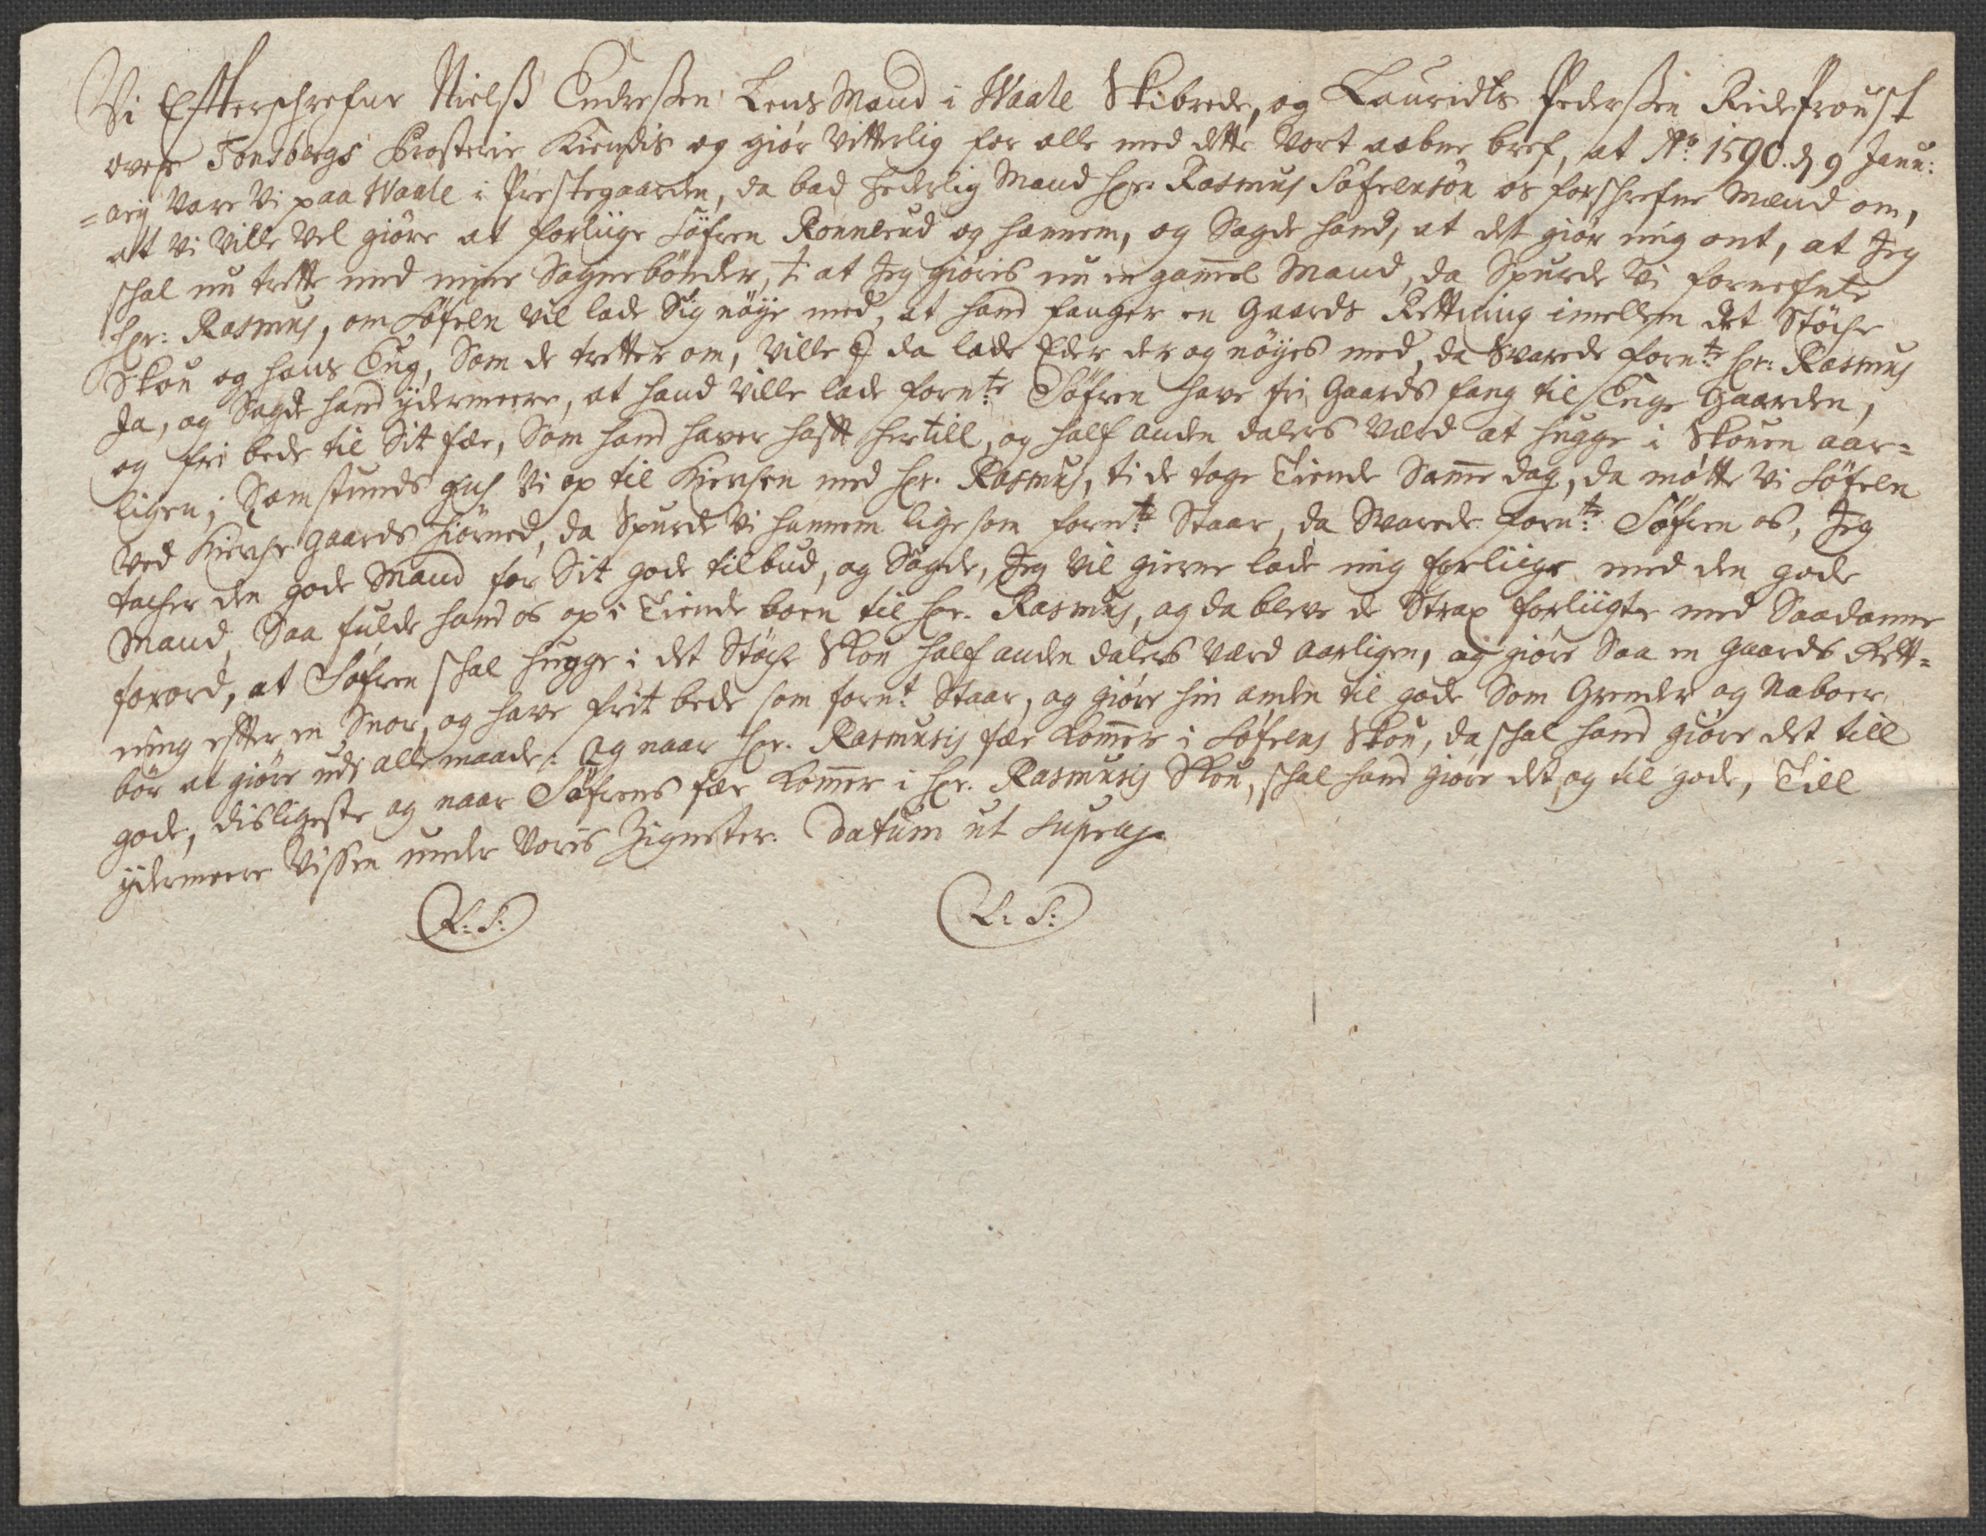 Vi Efterschrefne Nielß Endreßen Lens Mand i Waale Skibrede, og Lauridts Pederßen Rideproust
over Tonsbergs Prosterie Kiendis og giør Vitterlig for alle med dette Vort aabne bref, at Aō 1590. d 9 Janu:
=arij Vare Vi paa Waale i Prestegaarden, da bad hederlig Mand Hr. Rasmus Söfrensön os forschrefne Mænd om,
att Vi Ville Vel giöre at forliige Söfren Ronnerud og hannem, og Sagde hand, at det giör mig ont, at Jeg
schal nu trette med mine Sognebönder, ti at Jeg giöris nu en gammel Mand, da Spurde Vi fornefnte
Hr: Rasmus, om Söfren vil lade Sig nöye med, at hand fanger en Gaards Rettning imellem det Stöche
Skou og hans Eng, Som de tretter om, Ville I da lade Eder der og nöyes med, da Svarede fornte Hr: Rasmus
Ja, og Sagde hand ydermeere, at hand Ville lade fornte Söfren have fri Gaards fang til Enge Gaarden,
og fri bede til Sit fæe, Som hand haver hafft hertill, og half anden dalers Værd at hugge i Skouen aar=
ligen; Samstunds gich Vi op til Kierchen med Hr. Rasmus, ti de toge Tiende Samme dag, da mötte Vi Söfren
Ved Kierche gaards hiörned, da Spurde Vi hannem ligesom fornte Staar, da Svarede fornte Söfren os, Jeg
tacher den gode Mand for Sit gode tilbud, og Sagde, Jeg Vil gierne lade mig forliige med den gode
Mand, Saa fulde hand os op i Tiende boen til Hr. Rasmus, og da bleve de Strax forliigte med Saadanne
forord, at Söfren schal hugge i det Stöche Skou half anden dalers værd aarligen, og giöre Saa en gaards Rett=
ning efter en Snor, og have frit bede som fornt Staar, og giöre hin anden til gode Som Grender og Naboer
bör at giöre udi alle maade: Og naar Hr. Rasmusis fæe kommer i Söfrens Skou, da schal hand giöre det till
gode, disligeste og naar Söfrens fæe kommer i Hr. Rasmusis Skou, schal hand giöre det og til gode, Till
ydermeere Vissen under Voris Zigneter. Datum ut supra.
L: S:
L: S: